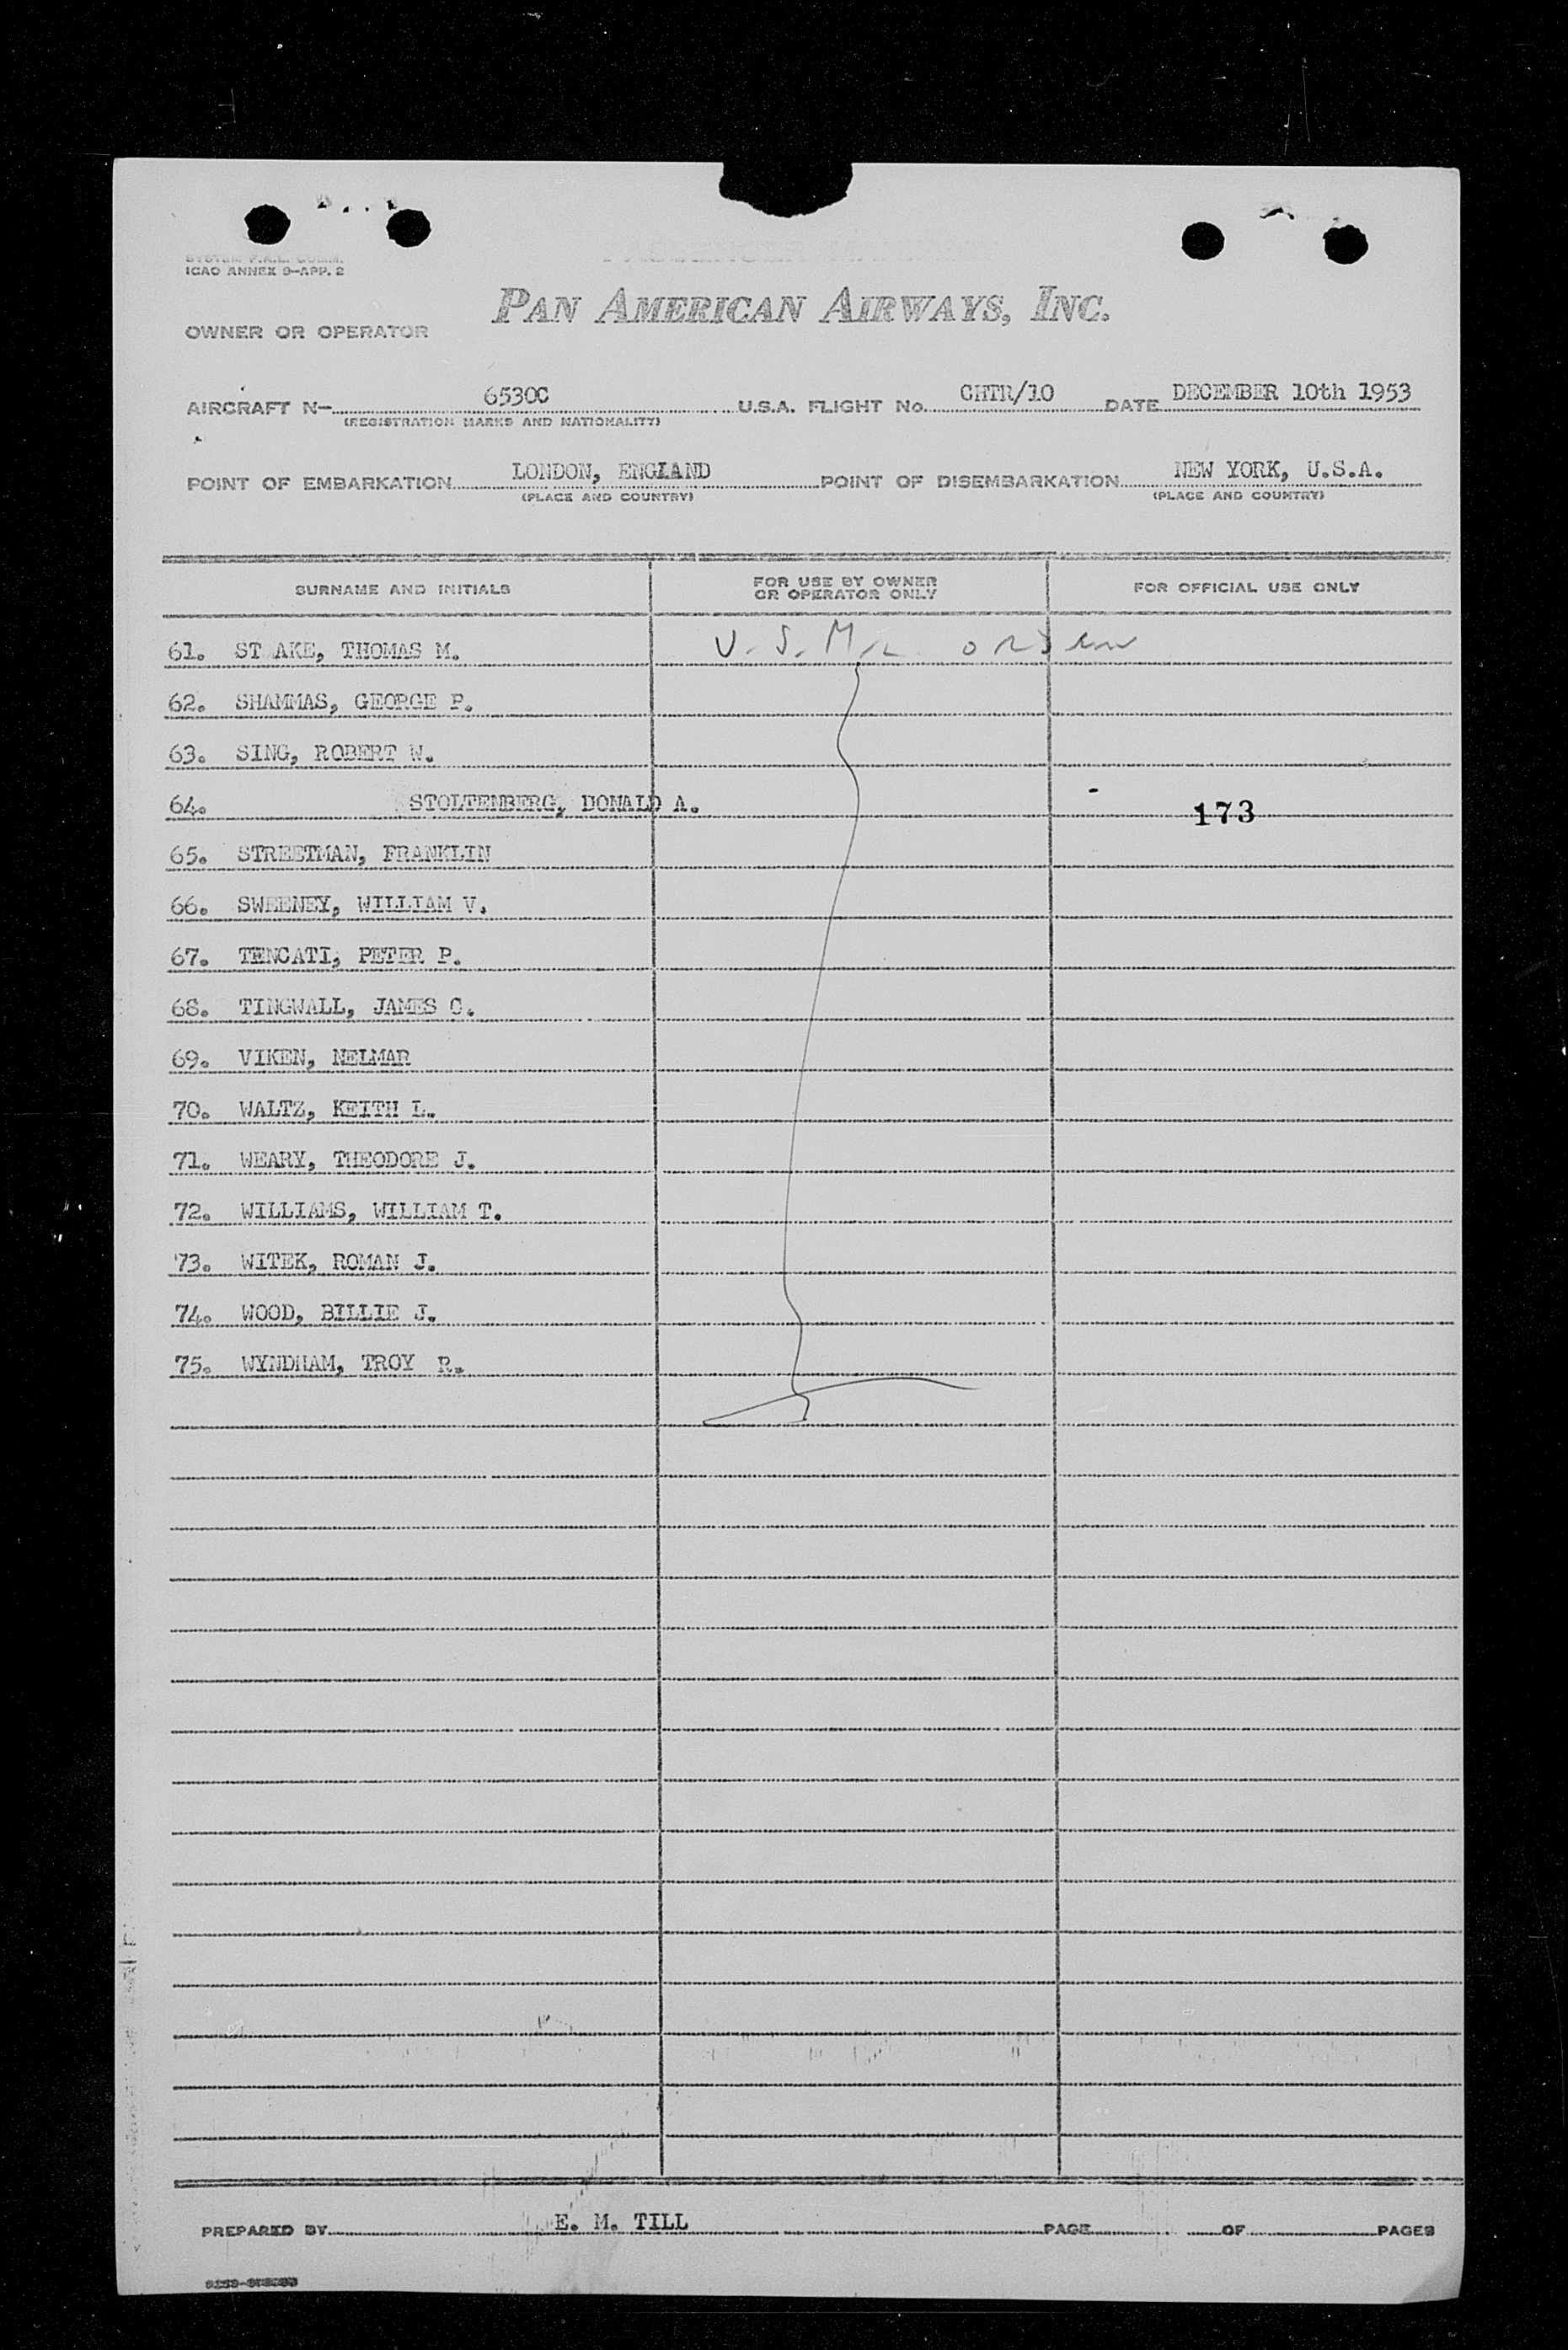 ICAO ANNEX 9-APP. 2
PAN AMERICAN AIRWAYS, INC.
OWNER OR OPERATOR
AIRCRAFT N- 6530C U.S.A. FLIGHT No. CHTR/10 DATE DECEMBER 10th 1953
(REGISTRATION MARKS AND NATIONALITY)
POINT OF EMBARKATION LONDON, ENGLAND POINT OF DISEMBARKATION NEW YORK, U.S.A.
(PLACE AND COUNTRY) (PLACE AND COUNTRY)
SURNAME AND INITIALS FOR USE BY OWNER OR OPERATOR ONLY FOR OFFICIAL USE ONLY
61. ST AKE, THOMAS M. U.S. Mil
62. SHAMMAS, GEORGE P.
63. SING, ROBERT W.
64. STOLTENBERG, DONALD A. 173
65. STREETMAN, FRANKLIN
66. SWEENEY, WILLIAM V.
67. TENCATI, PETER P.
68. TINGWALL, JAMES C.
69. VIKEN, NELMAR
70. WALTZ, KEITH L.
71. WEARY, THEODORE J.
72. WILLIAMS, WILLIAM T.
73. WITEK, ROMAN J.
74. WOOD, BILLIE J.
75. WYNDHAM, TROY R.
PREPARED BY E. M. TILL PAGE OF PAGES